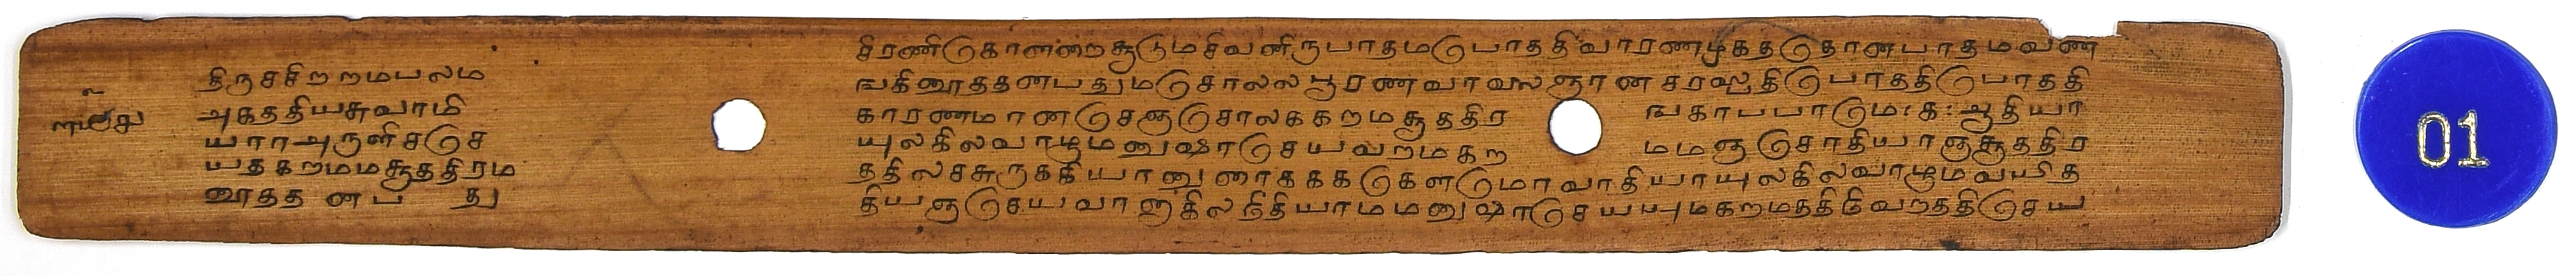 திருசசிறறமபலம
அகததியசுவாமி
யாரஅருளிசசெ
யதகறமமசூததிரம
னூதத னப து
சிரணிகொளனறைசூடுமசிவனிருபாதமபொததிவாரணமுகததோனபாதமவண
ஙகினூததனபதுமசொலலபூரணவாலைஞானசரஷதிபொததிபொததி
காரணமானசெஞசொலககறமசூததிர ஙகாபபாமெ:க:ஆதியா
யுலகிலவாழுமனுஷாசெயலறமகற மமஞசொதியாஞசூததிர
ததிலசசுருககியானுரைககககெளமொவாதியாயுலகிலவாழுமவயித
தியஞசெயவாளுகிலநிதியாமமனுஷாசெயயுமகறமததிவெறததிசெய
01